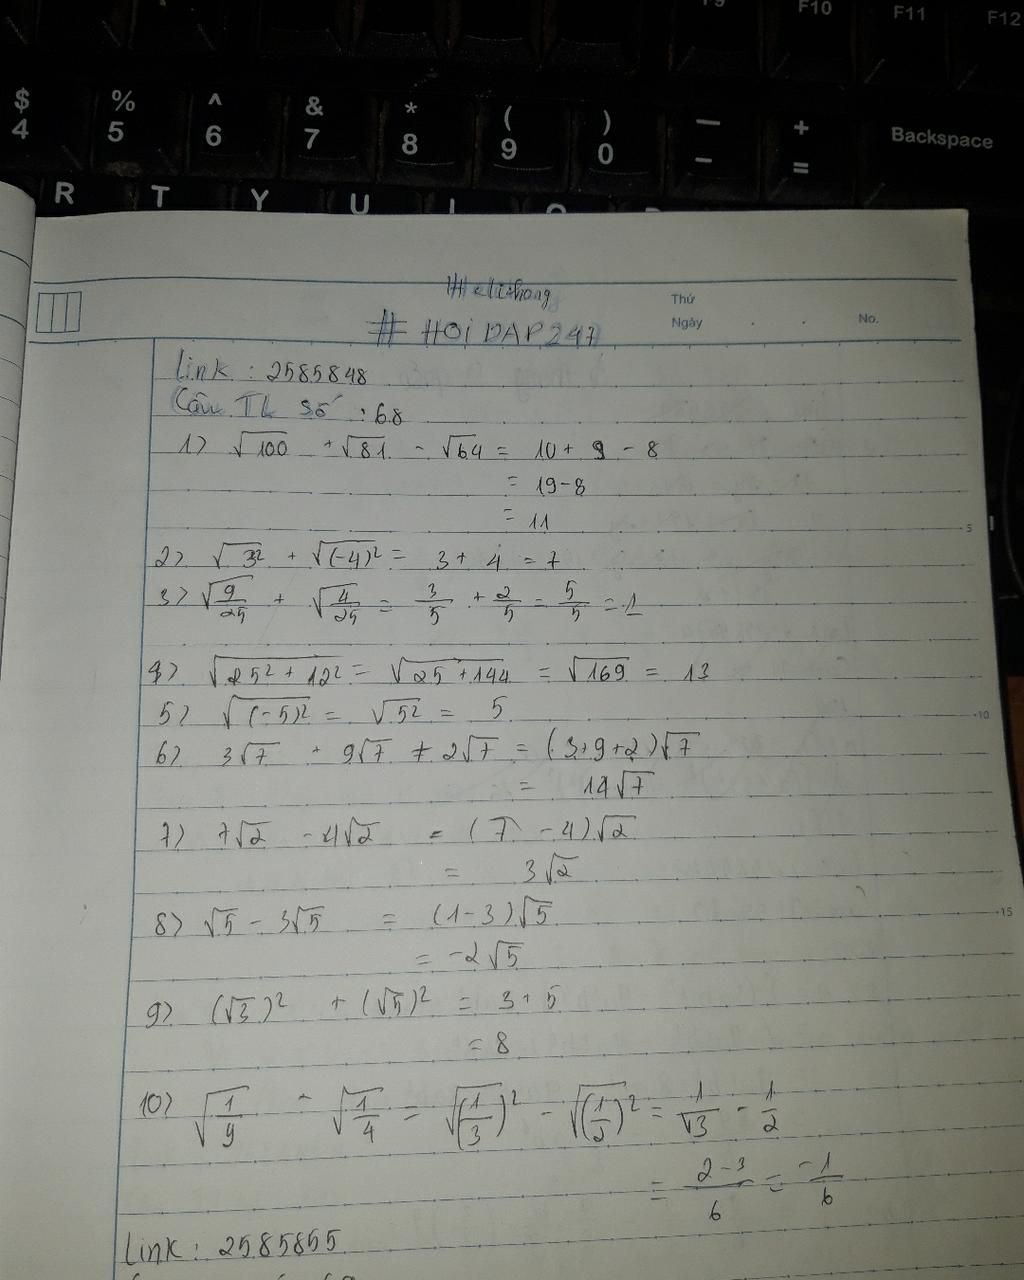 F9 F10 F11 F12
$ % ^ & * ( ) — +
4 5 6 7 8 9 0 - = Backspace
R T Y U I O P
Thứ
# HOI DAP 247
Ngày . . No.
Link : 2585848
Câu TL Số : 68
1) √100 + √81 - √64 = 10 + 9 - 8
= 19-8
= 11
5
2) √3² + √(-4)² = 3 + 4 = 7
3) √9/25 + √4/25 = 3/5 + 2/5 = 5/5 = 1
4) √25² + 12² = √25 + 144 = √169 = 13
5) √(-5)² = √5² = 5
10
6) 3√7 + 9√7 + 2√7 = (3+9+2)√7
= 14√7
7) 7√2 - 4√2 = (7 - 4)√2
= 3√2
8) √5 - 3√5 = (1-3)√5
15
= -2√5
9) (√3)² + (√5)² = 3 + 5
= 8
10) √1/9 - √1/4 = √(1/3)² - √(1/2)² = 1/√3 - 1/2
= 2-3/6 = -1/6
Link : 2585855